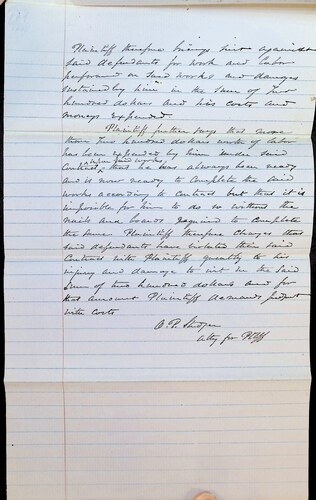 Plaintiff therefore brings suit against
said defendants for work and labor
performed on said works and damages
sustained by him in the sum of Two
hundred dollars and his costs and
moneys expended.
Plaintiff further says that more
than Two hundred dollars worth of labor
has been expended by him under said
contract upon said works that he has always been ready
and is now ready to complete the said
works according to contract but that it is
impossible for him to do so without the
nails and boards required to complete
the same Plaintiff therefore charges that
said defendants have violated their said
Contract with Plaintiff greatly to his
injury and damage to wit in the said
sum of two hundred dollars and for
that amount Plaintiff demands judgmt
with costs
Atty for Pltff